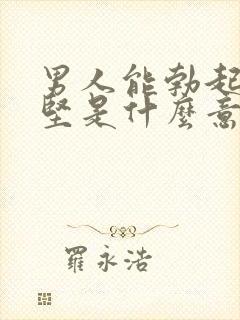 男人能勃起
堅是什麼意
羅永浩